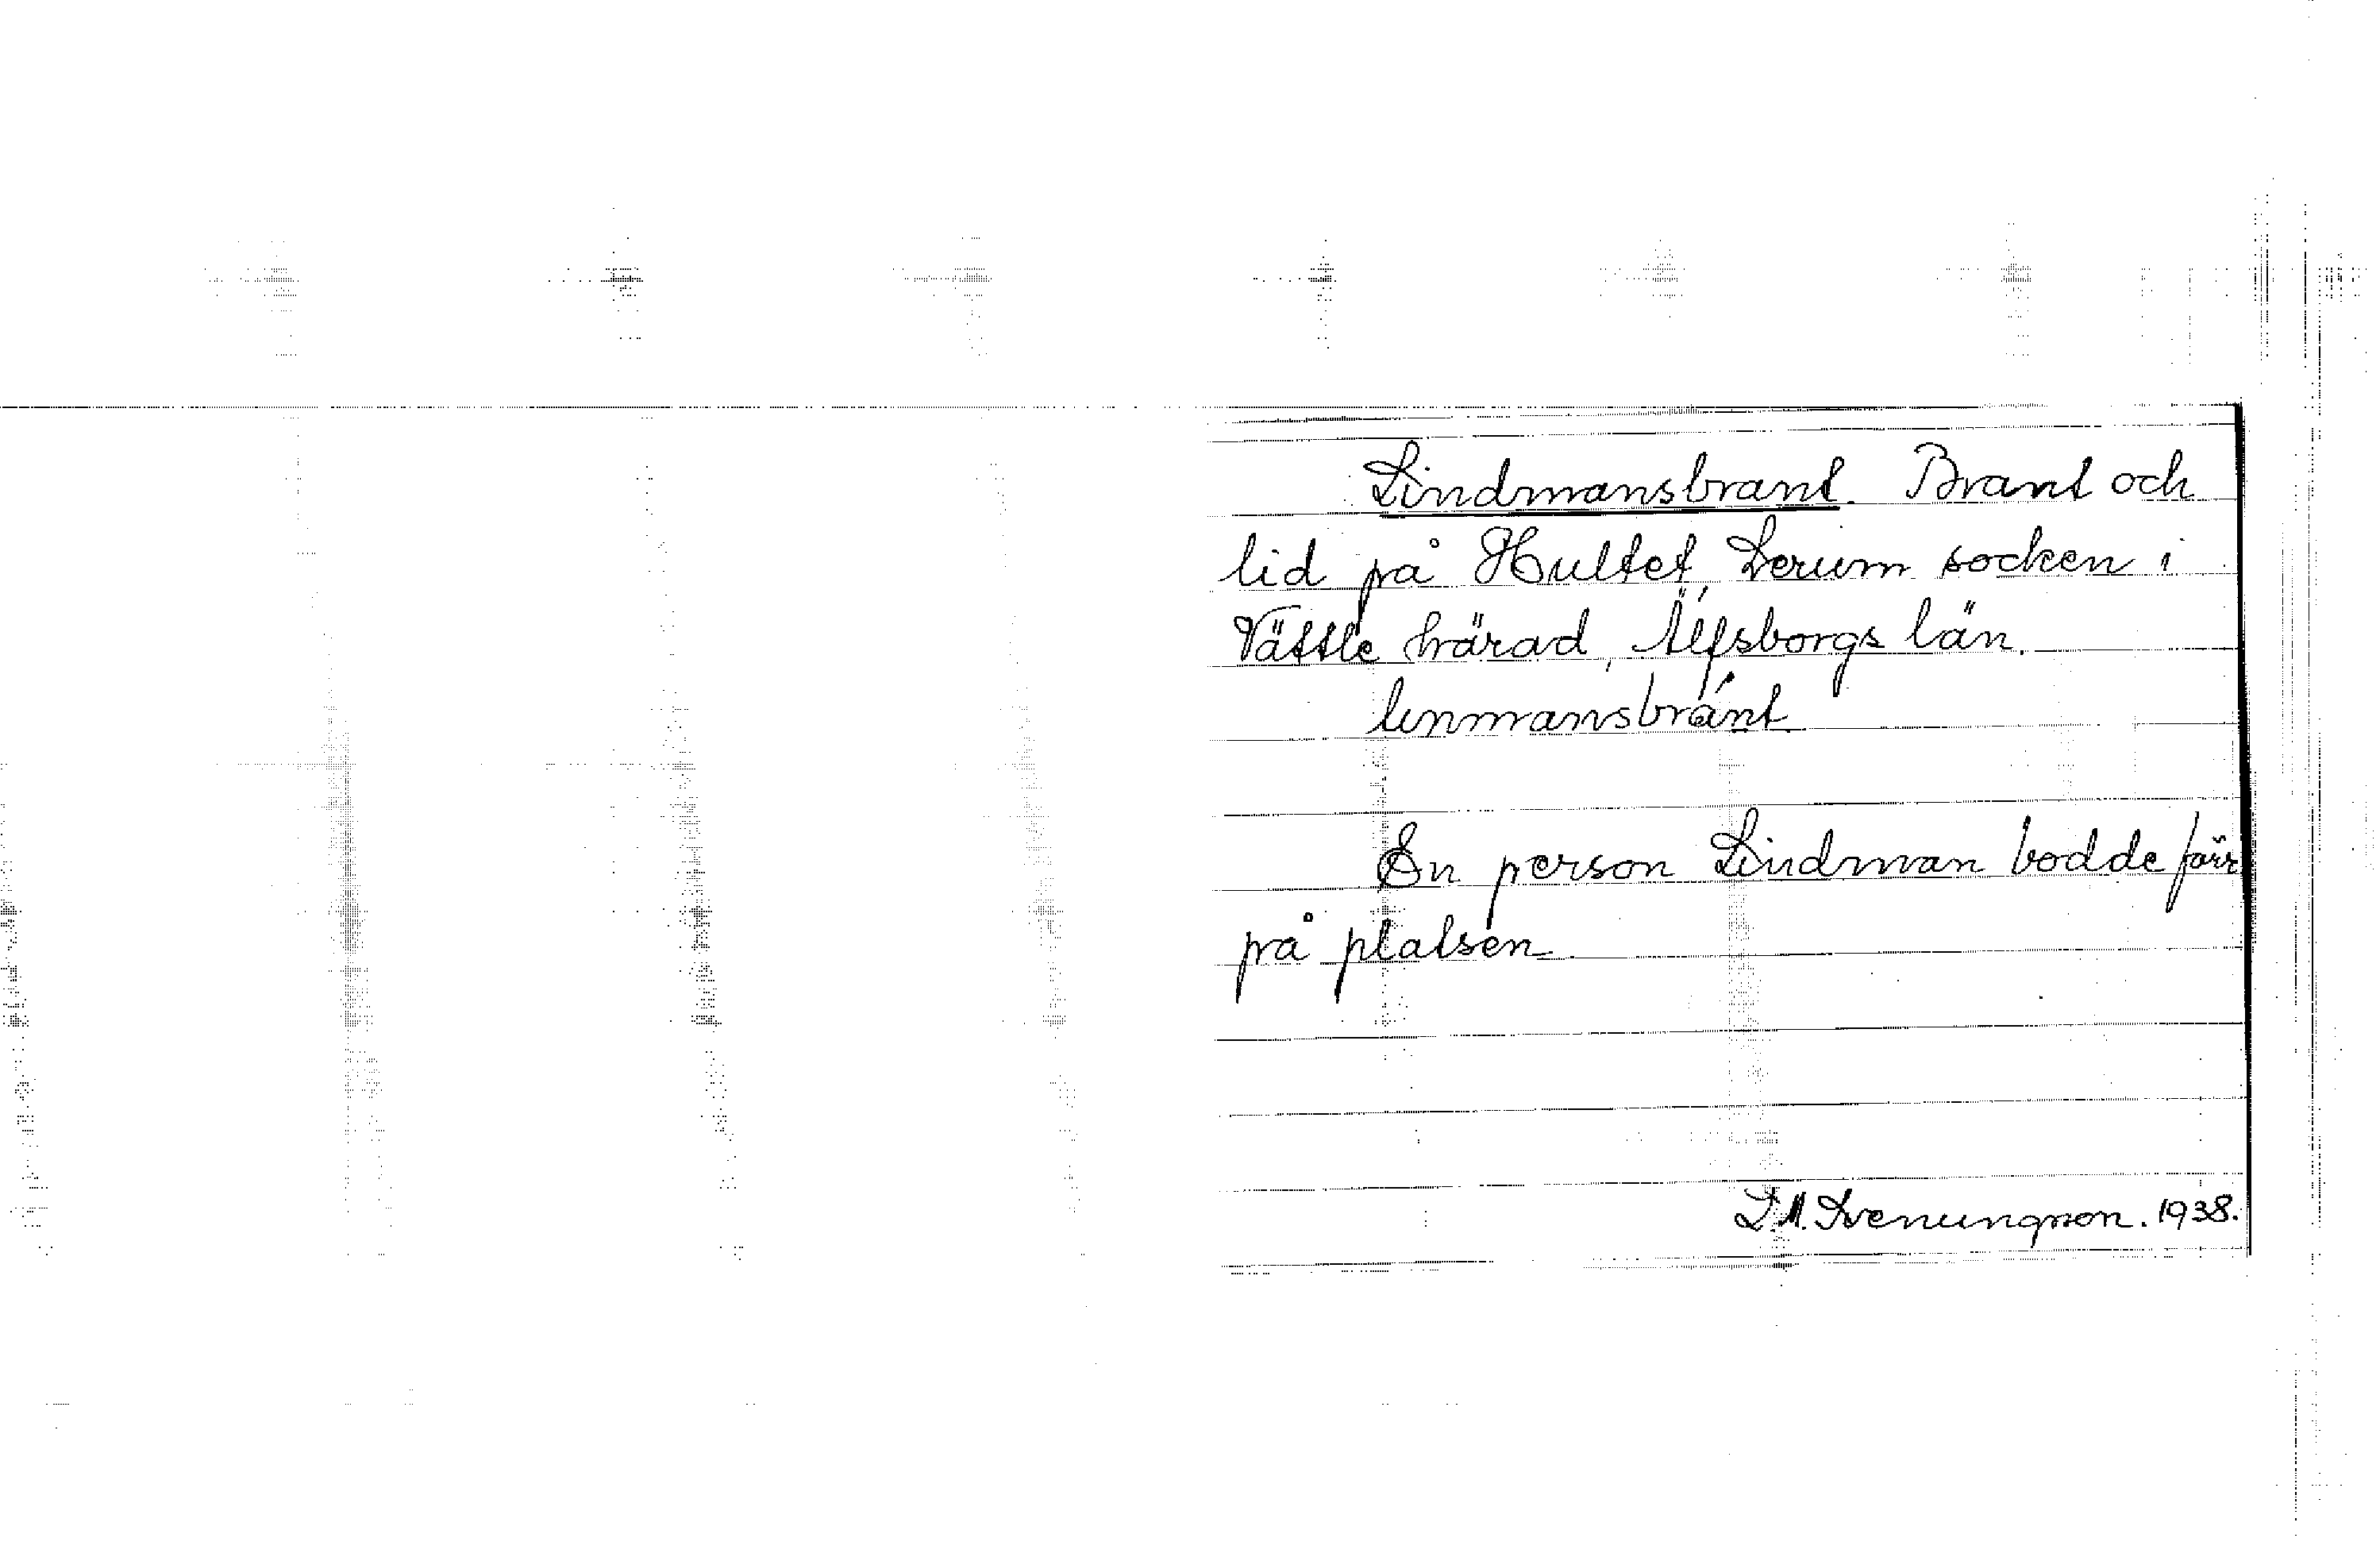 Lindmansbrant. Brant och
lid på Hultet, Lerum socken i
Vättle härad, Älfsborgs län.
linmansbránt
En person Lindman bodde förr
på platsen
L.M. Svenungsson. 1938.